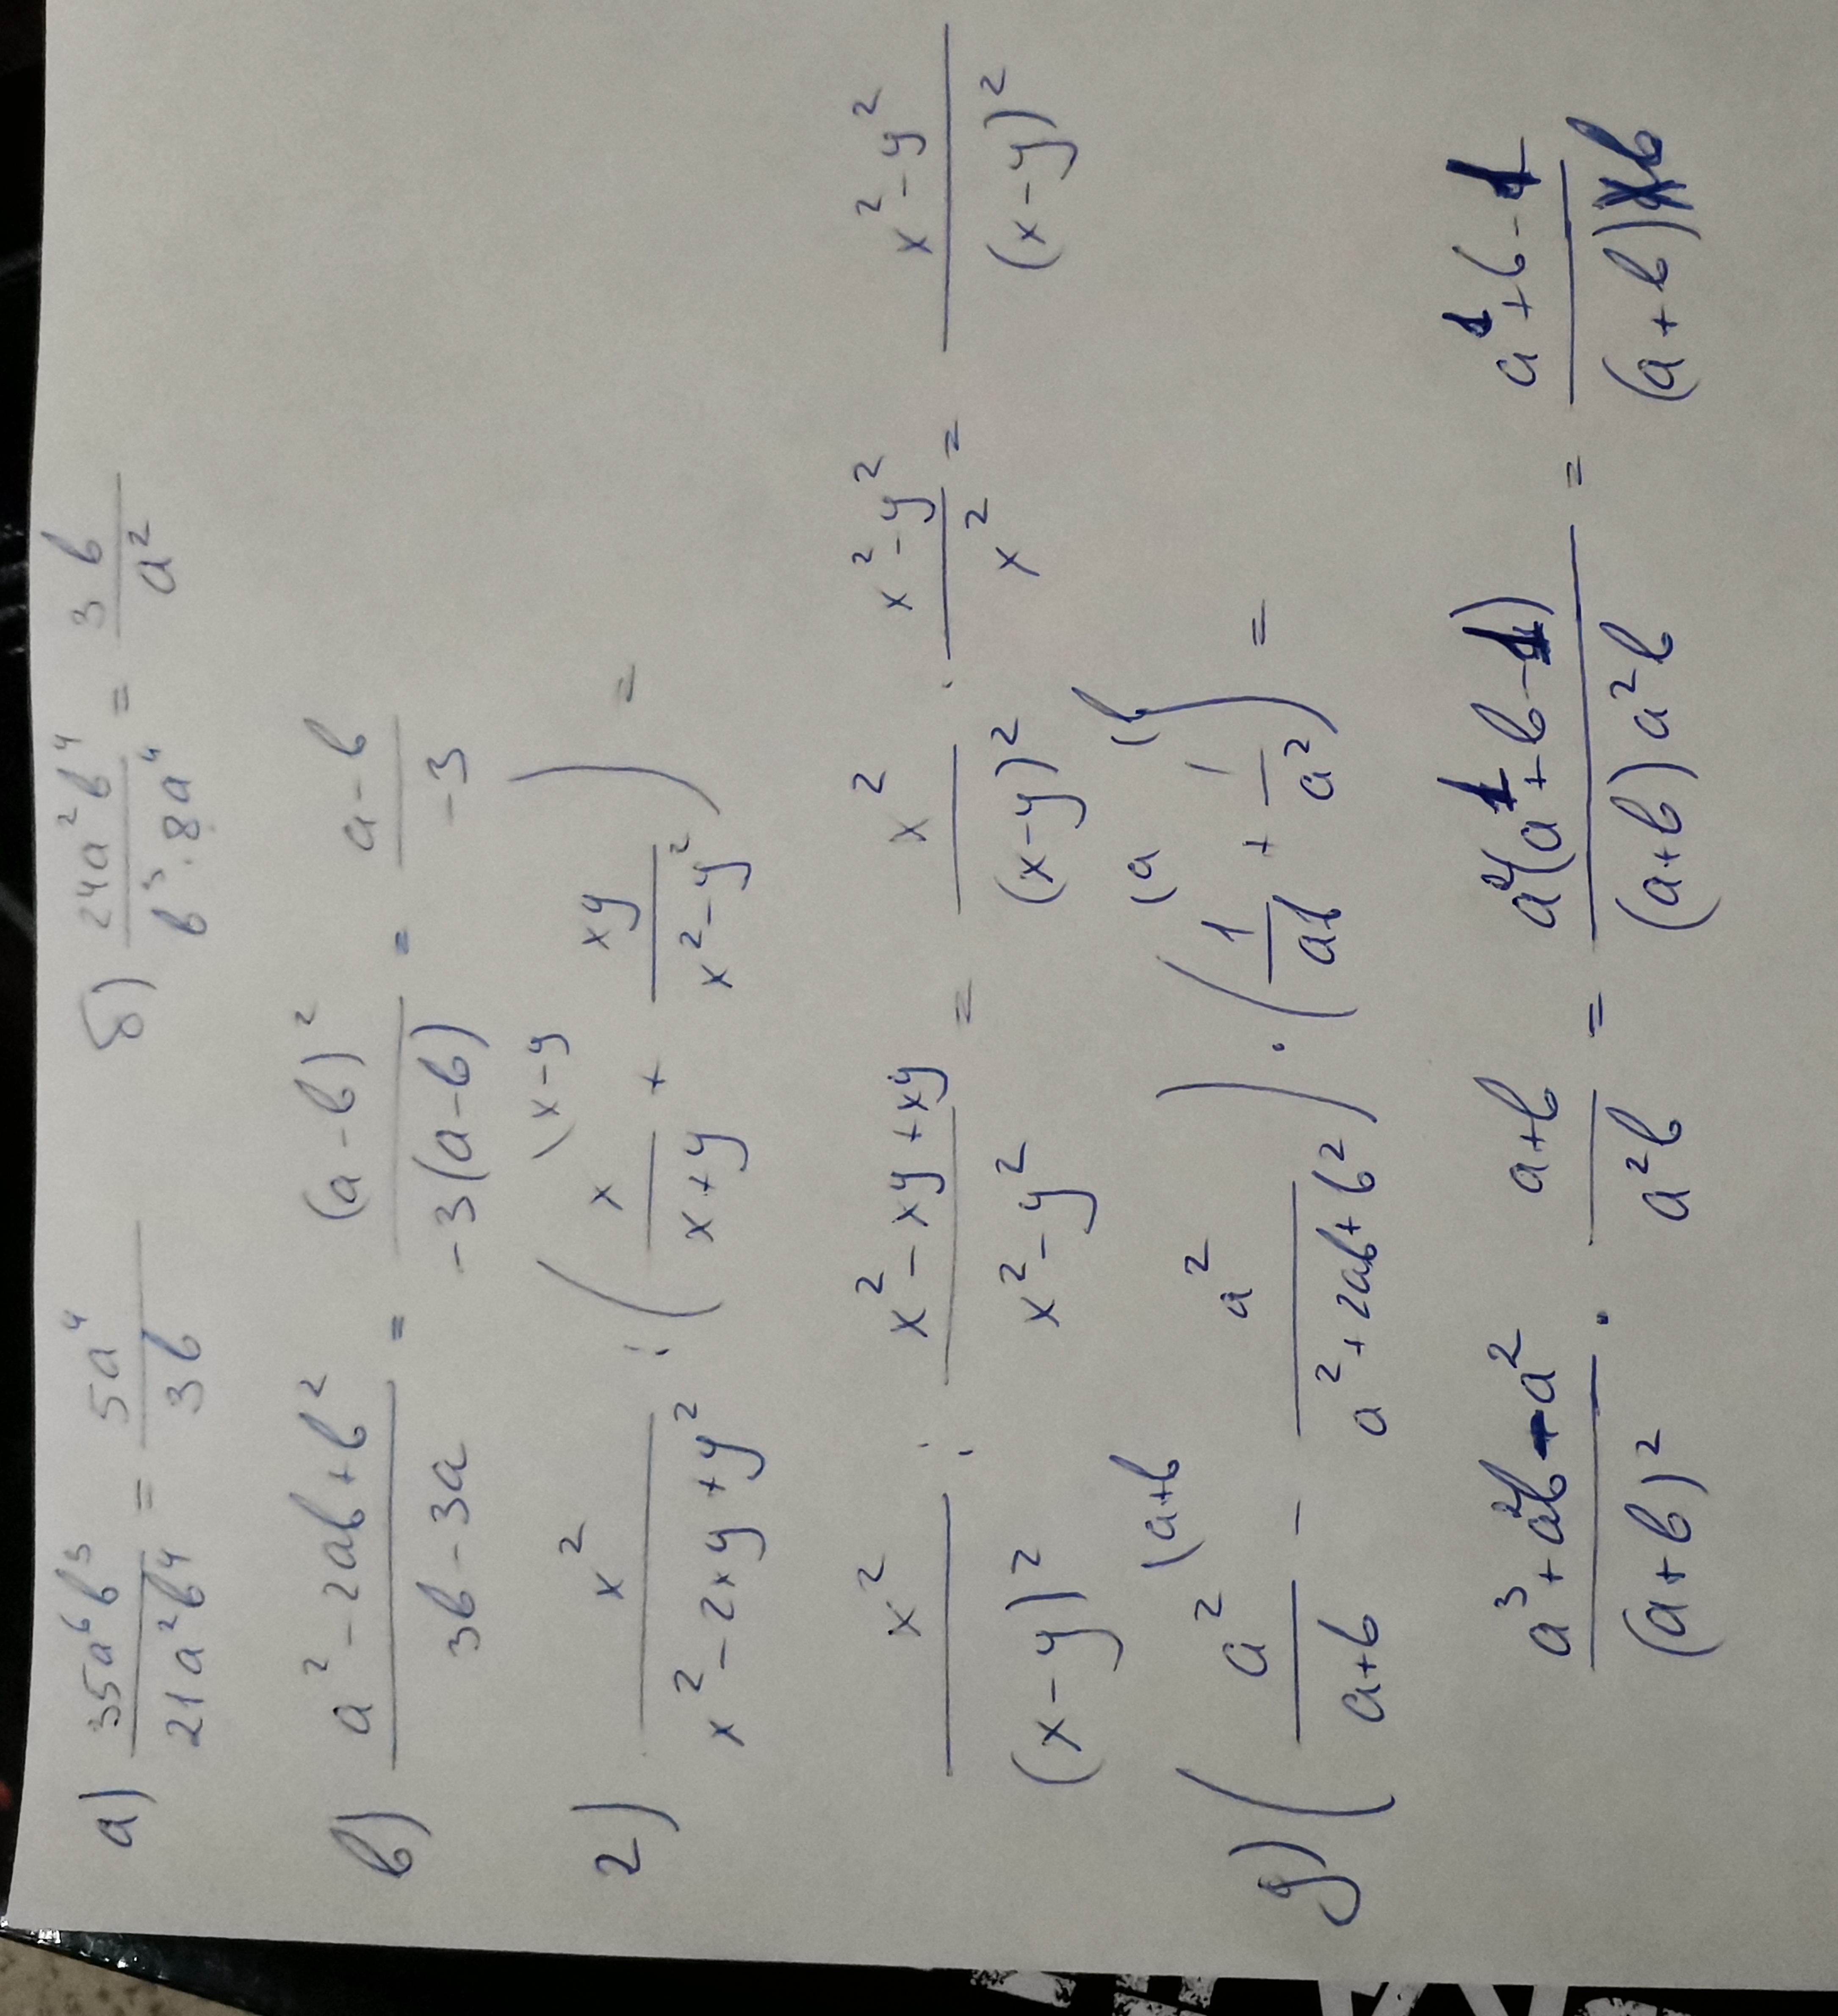 а) 35a⁶b³/21a²b⁴ = 5a⁴/3b б) 24a²b⁴/b³·8a⁴ = 3b/a²
в) a²-2ab+b²/3b-3a = (a-b)²/-3(a-b) = a-b/-3
г) x²/x²-2xy+y² : (x/x+y \x-y + xy/x²-y²) =
x²/(x-y)² : x²-xy+xy/x²-y² = x²/(x-y)² · x²-y²/x² = x²-y²/(x-y)²
д) (a²/a+b \a+b - a²/a²+2ab+b²) · (1/ab (a + 1/a² (b) =
a³+a²b-a²/(a+b)² · a+b/a²b = a²(a+b-1)/(a+b)a²b = a+b-1/(a+b)b